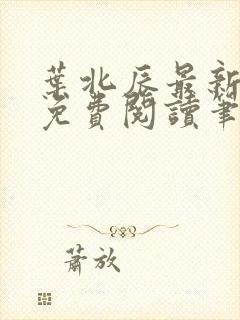 葉北辰最新
免費閱讀筆
蕭放